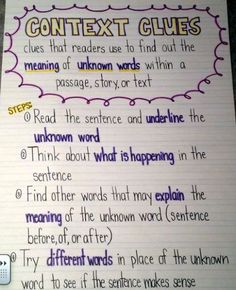 CONTEXT CLUES
clues that readers use to find out the
meaning of unknown words within a
passage, story, or text
STEPS:
Read the sentence and underline the
unknown word
Think about what is happening in the
sentence
Find other words that may explain the
meaning of the unknown word (sentence
before, of, or after)
Try different words in place of the unknown
word to see if the sentence makes sense